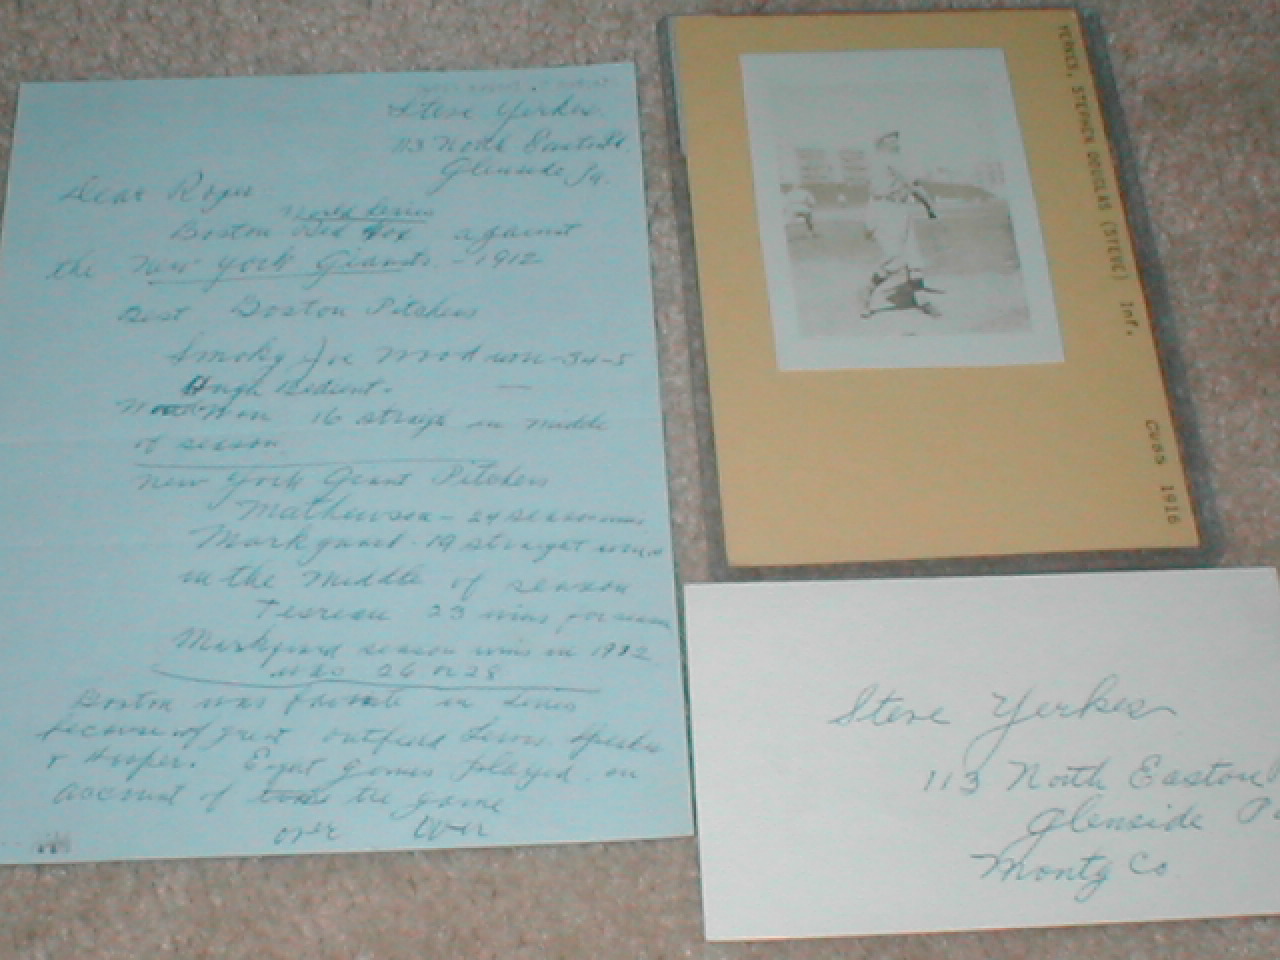 Steve Yerkes
113 North Easton
Glenside Pa.
Dear Roger
World Series
Boston Red Sox against
the New York Giants - 1912
Best Boston Pitchers
Smoky Joe Wood won - 34-5
Hugh Bedient -
Wood Won 16 straigh in middle
of season
New York Giant Pitchers
Mathewson - 24 season wins
Markquard - 19 straight wins
in the middle of season
Tesreau 23 wins for season
Markquard season wins in 1912
was 26 or 28
Boston was favorite in Series
because of great outfield Lewis Speaker
& Hooper. Eight games played on
account of tie game
over over
YERKES, STEPHEN DOUGLAS (STEVE) Inf.
Cubs 1916
Steve Yerkes
113 North Easton
Glenside Pa
Montg Co